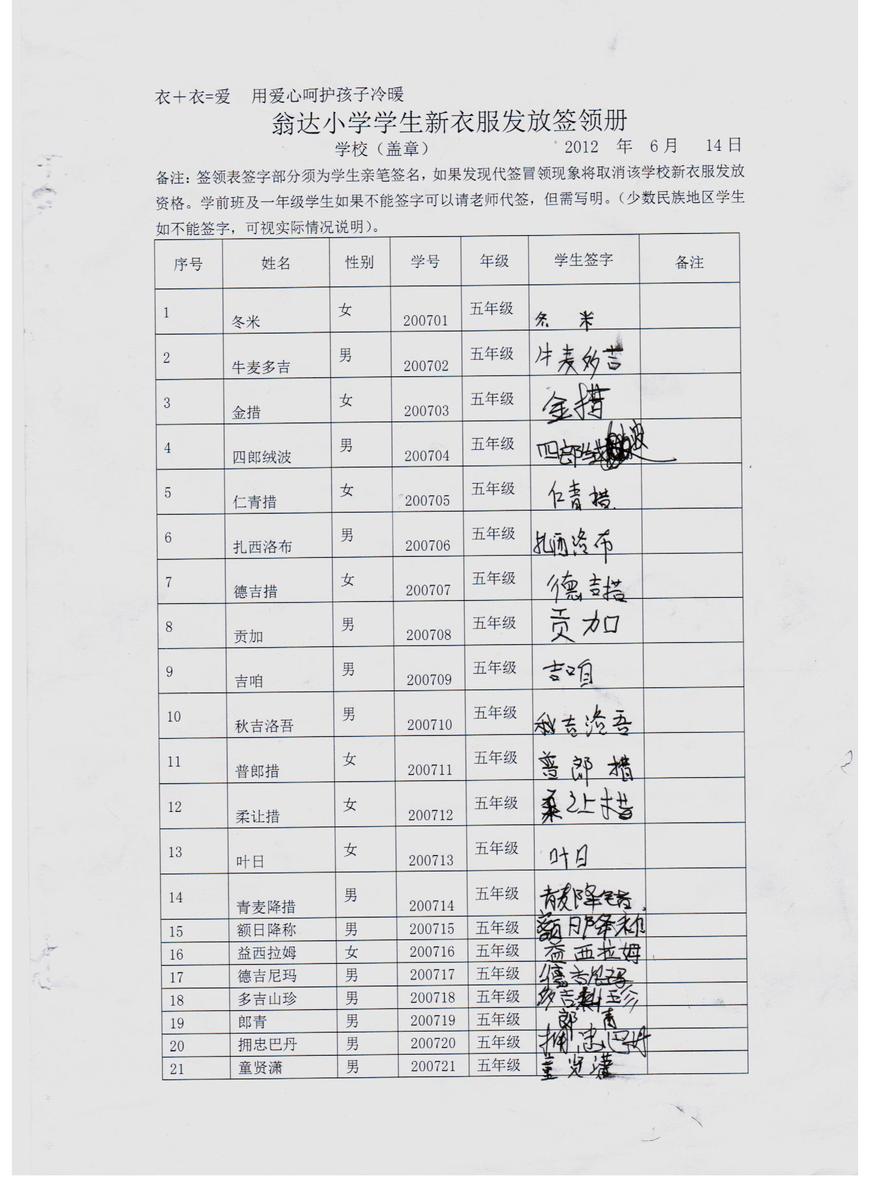 衣＋衣=爱 用爱心呵护孩子冷暖
翁达小学学生新衣服发放签领册
学校（盖章） 2012 年 6月 14日
备注：签领表签字部分须为学生亲笔签名，如果发现代签冒领现象将取消该学校新衣服发放
资格。学前班及一年级学生如果不能签字可以请老师代签，但需写明。（少数民族地区学生
如不能签字，可视实际情况说明）。
序号 姓名 性别 学号 年级 学生签字 备注
1 冬米 女 200701 五年级 冬米
2 牛麦多吉 男 200702 五年级 牛麦多吉
3 金措 女 200703 五年级 金措
4 四郎绒波 男 200704 五年级 四郎绒波
5 仁青措 女 200705 五年级 仁青措
6 扎西洛布 男 200706 五年级 扎西洛布
7 德吉措 女 200707 五年级 德吉措
8 贡加 男 200708 五年级 贡加
9 吉咱 男 200709 五年级 吉咱
10 秋吉洛吾 男 200710 五年级 秋吉洛吾
11 普郎措 女 200711 五年级 普郎措
12 柔让措 女 200712 五年级 柔让措
13 叶日 女 200713 五年级 叶日
14 青麦降措 男 200714 五年级 青麦降措
15 额日降称 男 200715 五年级 额日降称
16 益西拉姆 女 200716 五年级 益西拉姆
17 德吉尼玛 男 200717 五年级 德吉尼玛
18 多吉山珍 男 200718 五年级 多吉 珍
19 郎青 男 200719 五年级 郎青
20 拥忠巴丹 男 200720 五年级 拥忠巴丹
21 童贤潇 男 200721 五年级 童贤潇